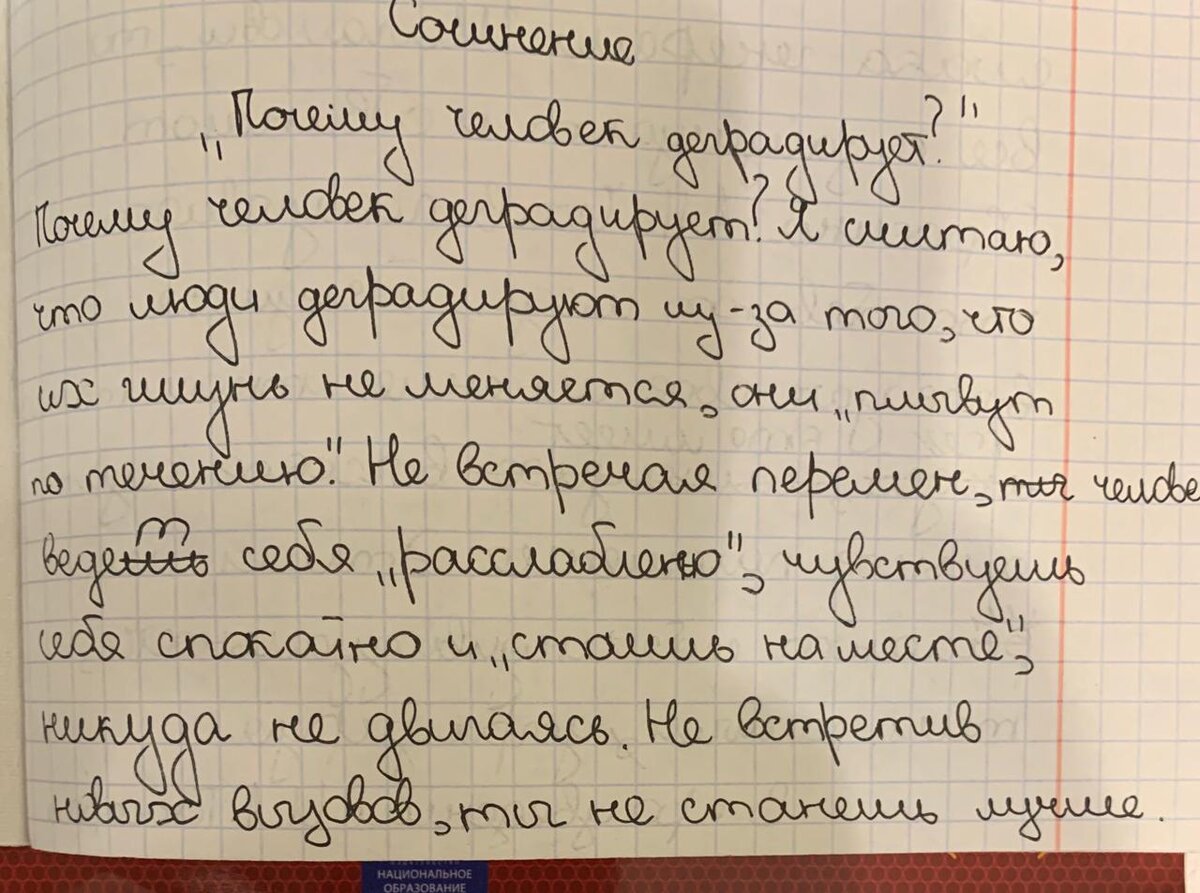 Сочинение
„Почему человек деградирует?"
Почему человек деградирует? Я считаю,
что люди деградируют из-за того, что
их жизнь не меняется, они „плывут
по течению". Не встречая перемен, ты челове
ведешьт себя „расслаблено", чувствуешь
себя спокайно и „стоишь на месте",
никуда не двигаясь. Не встретив
новых вызовов, ты не станешь лучше.
НАЦИОНАЛЬНОЕ
ОБРАЗОВАНИЕ